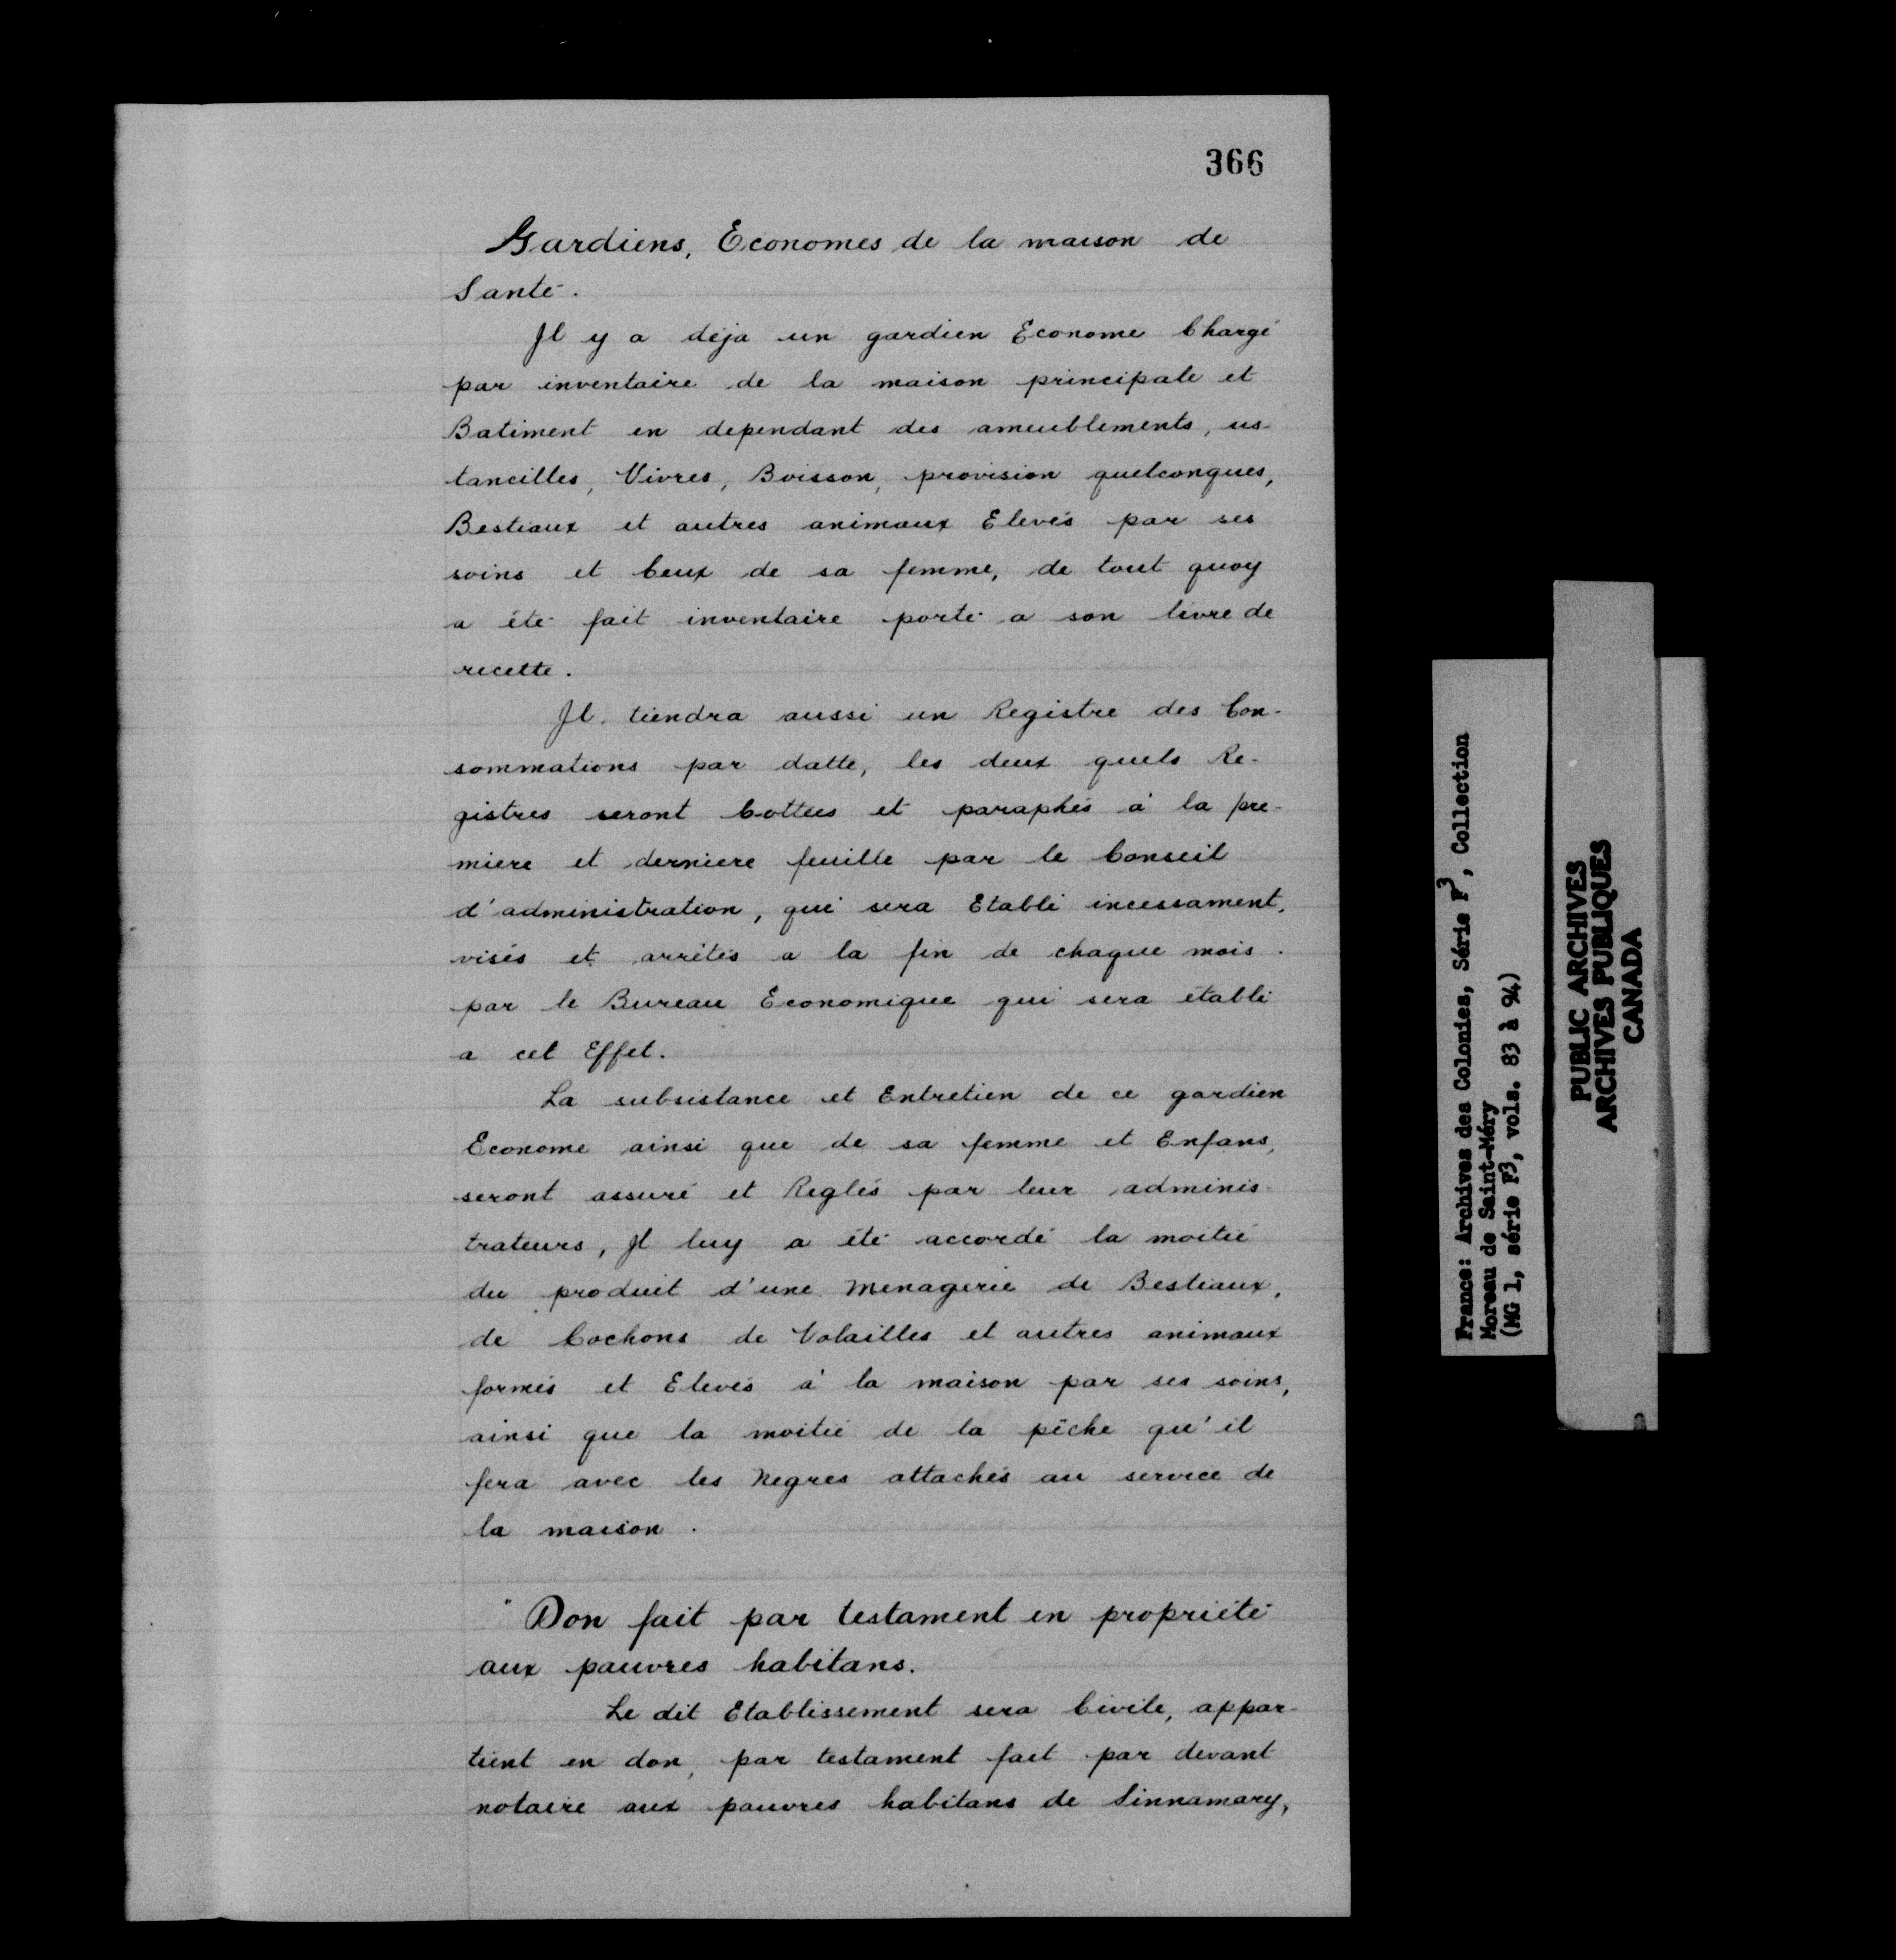 366
Gardiens, Economes de la maison de
Santé.
Il y a déja un gardien Econome Chargé
par inventaire de la maison principale et
Batiment en dependant des ameublements, us-
tancilles, Vivres, Boisson, provision quelconques,
Bestiaux et autres animaux Elevés par ses
soins et Ceux de sa femme, de tout quoy
a été fait inventaire porté a son livre de
recette.
Il tiendra aussi un Registre des Con-
sommations par datte, les deux quels Re-
gistres seront Cottées et paraphés à la pre-
miere et derniere feuille par le Conseil
d'administration, qui sera Etabli incessament,
visés et arrêtés a la fin de chaque mois.
par le Bureau Economique qui sera établi
a cet Effet.
La subsistance et Entretien de ce gardien
Econome ainsi que de sa femme et Enfans,
seront assuré et Reglés par leur adminis-
trateurs, Il luy a été accordé la moitié
du produit d'une Menagerie de Bestiaux,
de Cochons de Volailles et autres animaux
formés et Elevés à la maison par ses soins,
ainsi que la moitié de la pêche qu'il
fera avec les Negres attachés au service de
la maison.
" Don fait par testament en propriété
aux pauvres habitans.
Le dit Etablissement sera Civile, appar-
tient en don, par testament fait par devant
notaire aux pauvres habitans de Sinnamary,
France: Archives des Colonies, Série F3, Collection
Moreau de Saint-Méry
(MG 1, série F3, vols. 83 à 94)
PUBLIC ARCHIVES
ARCHIVES PUBLIQUES
CANADA